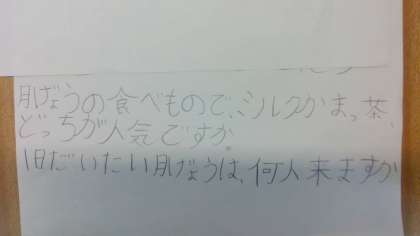 肌ぎょうの食べもので、ミルクかまっ茶、
どっちが人気ですか。
1日だいたい肌ぎょうは、何人来ますか